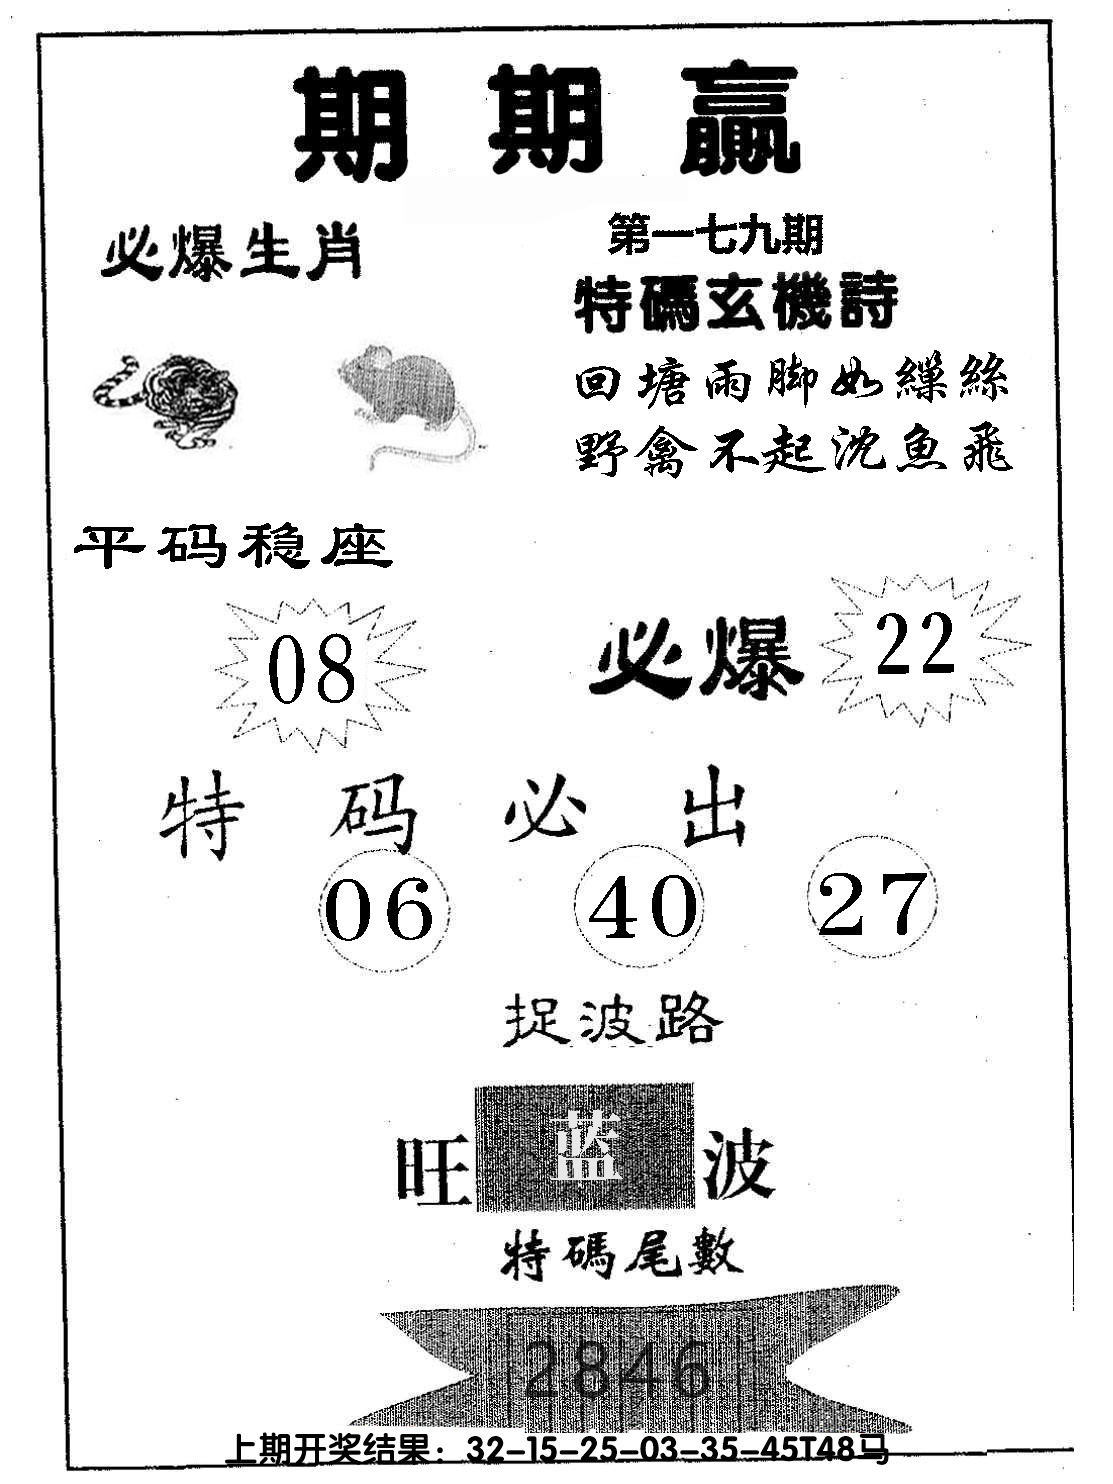 期期赢
必爆生肖
第一七九期
特碼玄機詩
回塘雨脚如繰絲
野禽不起沈魚飛
平码稳座
08
必爆 22
特码必出
06 40 27
捉波路
旺 蓝 波
特碼尾數
2846
上期开奖结果：32-15-25-03-35-45T48马